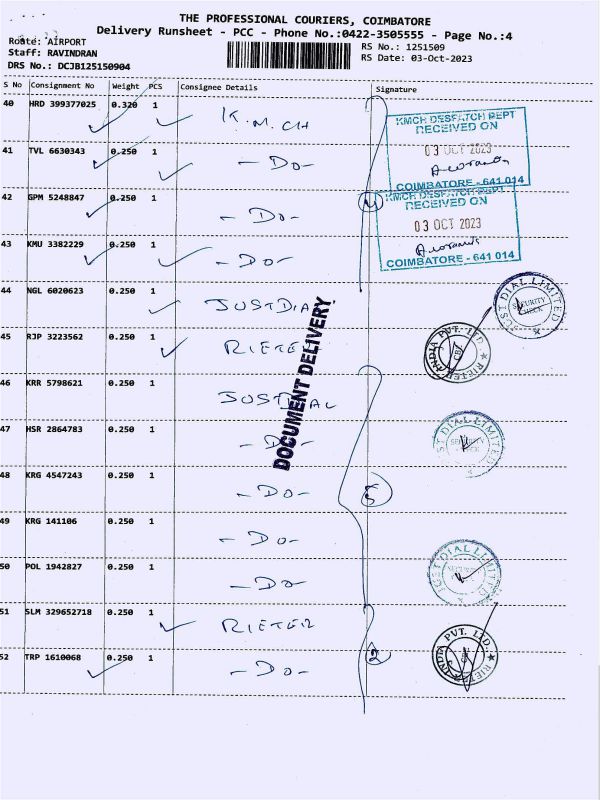 THE PROFESSIONAL COURIERS, COIMBATORE
Delivery Runsheet - PCC - Phone No.:0422-3505555 - Page No.:4
Route: AIRPORT
Staff: RAVINDRAN
DRS No.: DCJB125150904
RS No.: 1251509
RS Date: 03-Oct-2023
S No Consignment No Weight PCS Consignee Details Signature
40 HRD 399377025 0.320 1 K.M.CH
41 TVL 6630343 0.250 1 -DO-
42 GPM 5248847 0.250 1 -DO-
43 KMU 3382229 0.250 1 -DO-
4
KMCH DESPATCH DEPT
RECEIVED ON
03 OCT 2023
COIMBATORE - 641 014
KMCH DESPATCH DEPT
RECEIVED ON
03 OCT 2023
COIMBATORE - 641 014
44 NGL 6020623 0.250 1 JUSTDIAL
JUST DIAL LIMITED
SECURITY CHECK
45 RJP 3223562 0.250 1 RIETER
RIETER INDIA PVT. LTD.
CBE
DOCUMENT DELIVERY
46 KRR 5798621 0.250 1 JUSTDIAL
47 HSR 2864783 0.250 1 -DO-
JUST DIAL LIMITED
SECURITY CHECK
48 KRG 4547243 0.250 1 -DO-
5
49 KRG 141106 0.250 1 -DO-
50 POL 1942827 0.250 1 -DO-
JUST DIAL LIMITED
51 SLM 329652718 0.250 1 RIETER
52 TRP 1610068 0.250 1 -DO-
2
RIETER INDIA PVT. LTD.